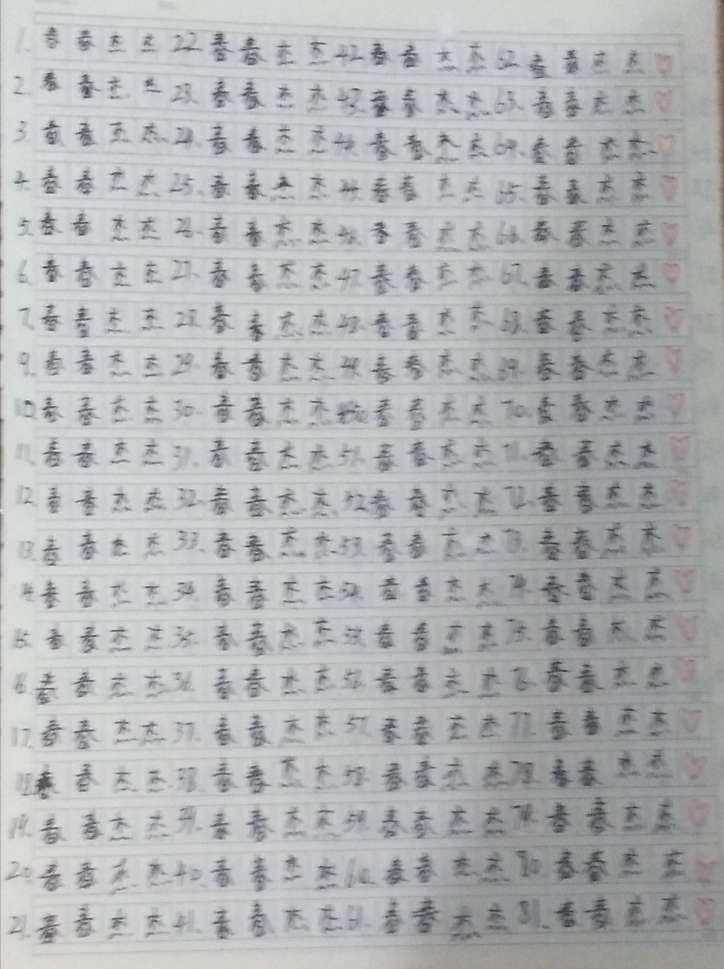 1. 春春杰杰 22 春春杰杰 42 春春杰杰 62. 春春杰杰
2. 春春杰杰 23. 春春杰杰 43. 春春杰杰 63. 春春杰杰
3. 春春杰杰 24. 春春杰杰 44. 春春杰杰 64. 春春杰杰
4. 春春杰杰 25. 春春杰杰 45. 春春杰杰 65. 春春杰杰
5. 春春杰杰 26. 春春杰杰 46. 春春杰杰 66. 春春杰杰
6. 春春杰杰 27. 春春杰杰 47. 春春杰杰 67. 春春杰杰
7. 春春杰杰 28. 春春杰杰 48. 春春杰杰 68. 春春杰杰
9. 春春杰杰 29. 春春杰杰 49. 春春杰杰 69. 春春杰杰
10. 春春杰杰 30. 春春杰杰 50 春春杰杰 70. 春春杰杰
11. 春春杰杰 31. 春春杰杰 51. 春春杰杰 71. 春春杰杰
12. 春春杰杰 32. 春春杰杰 52 春春杰杰 72. 春春杰杰
13. 春春杰杰 33. 春春杰杰 53. 春春杰杰 73. 春春杰杰
14. 春春杰杰 34. 春春杰杰 54. 春春杰杰 74. 春春杰杰
15. 春春杰杰 35. 春春杰杰 55. 春春杰杰 75. 春春杰杰
16. 春春杰杰 36. 春春杰杰 56. 春春杰杰 76. 春春杰杰
17. 春春杰杰 37. 春春杰杰 57. 春春杰杰 77. 春春杰杰
18. 春春杰杰 38. 春春杰杰 58. 春春杰杰 78. 春春杰杰
19. 春春杰杰 39. 春春杰杰 59. 春春杰杰 79. 春春杰杰
20. 春春杰杰 40. 春春杰杰 60. 春春杰杰 80. 春春杰杰
21. 春春杰杰 41. 春春杰杰 61. 春春杰杰 81. 春春杰杰